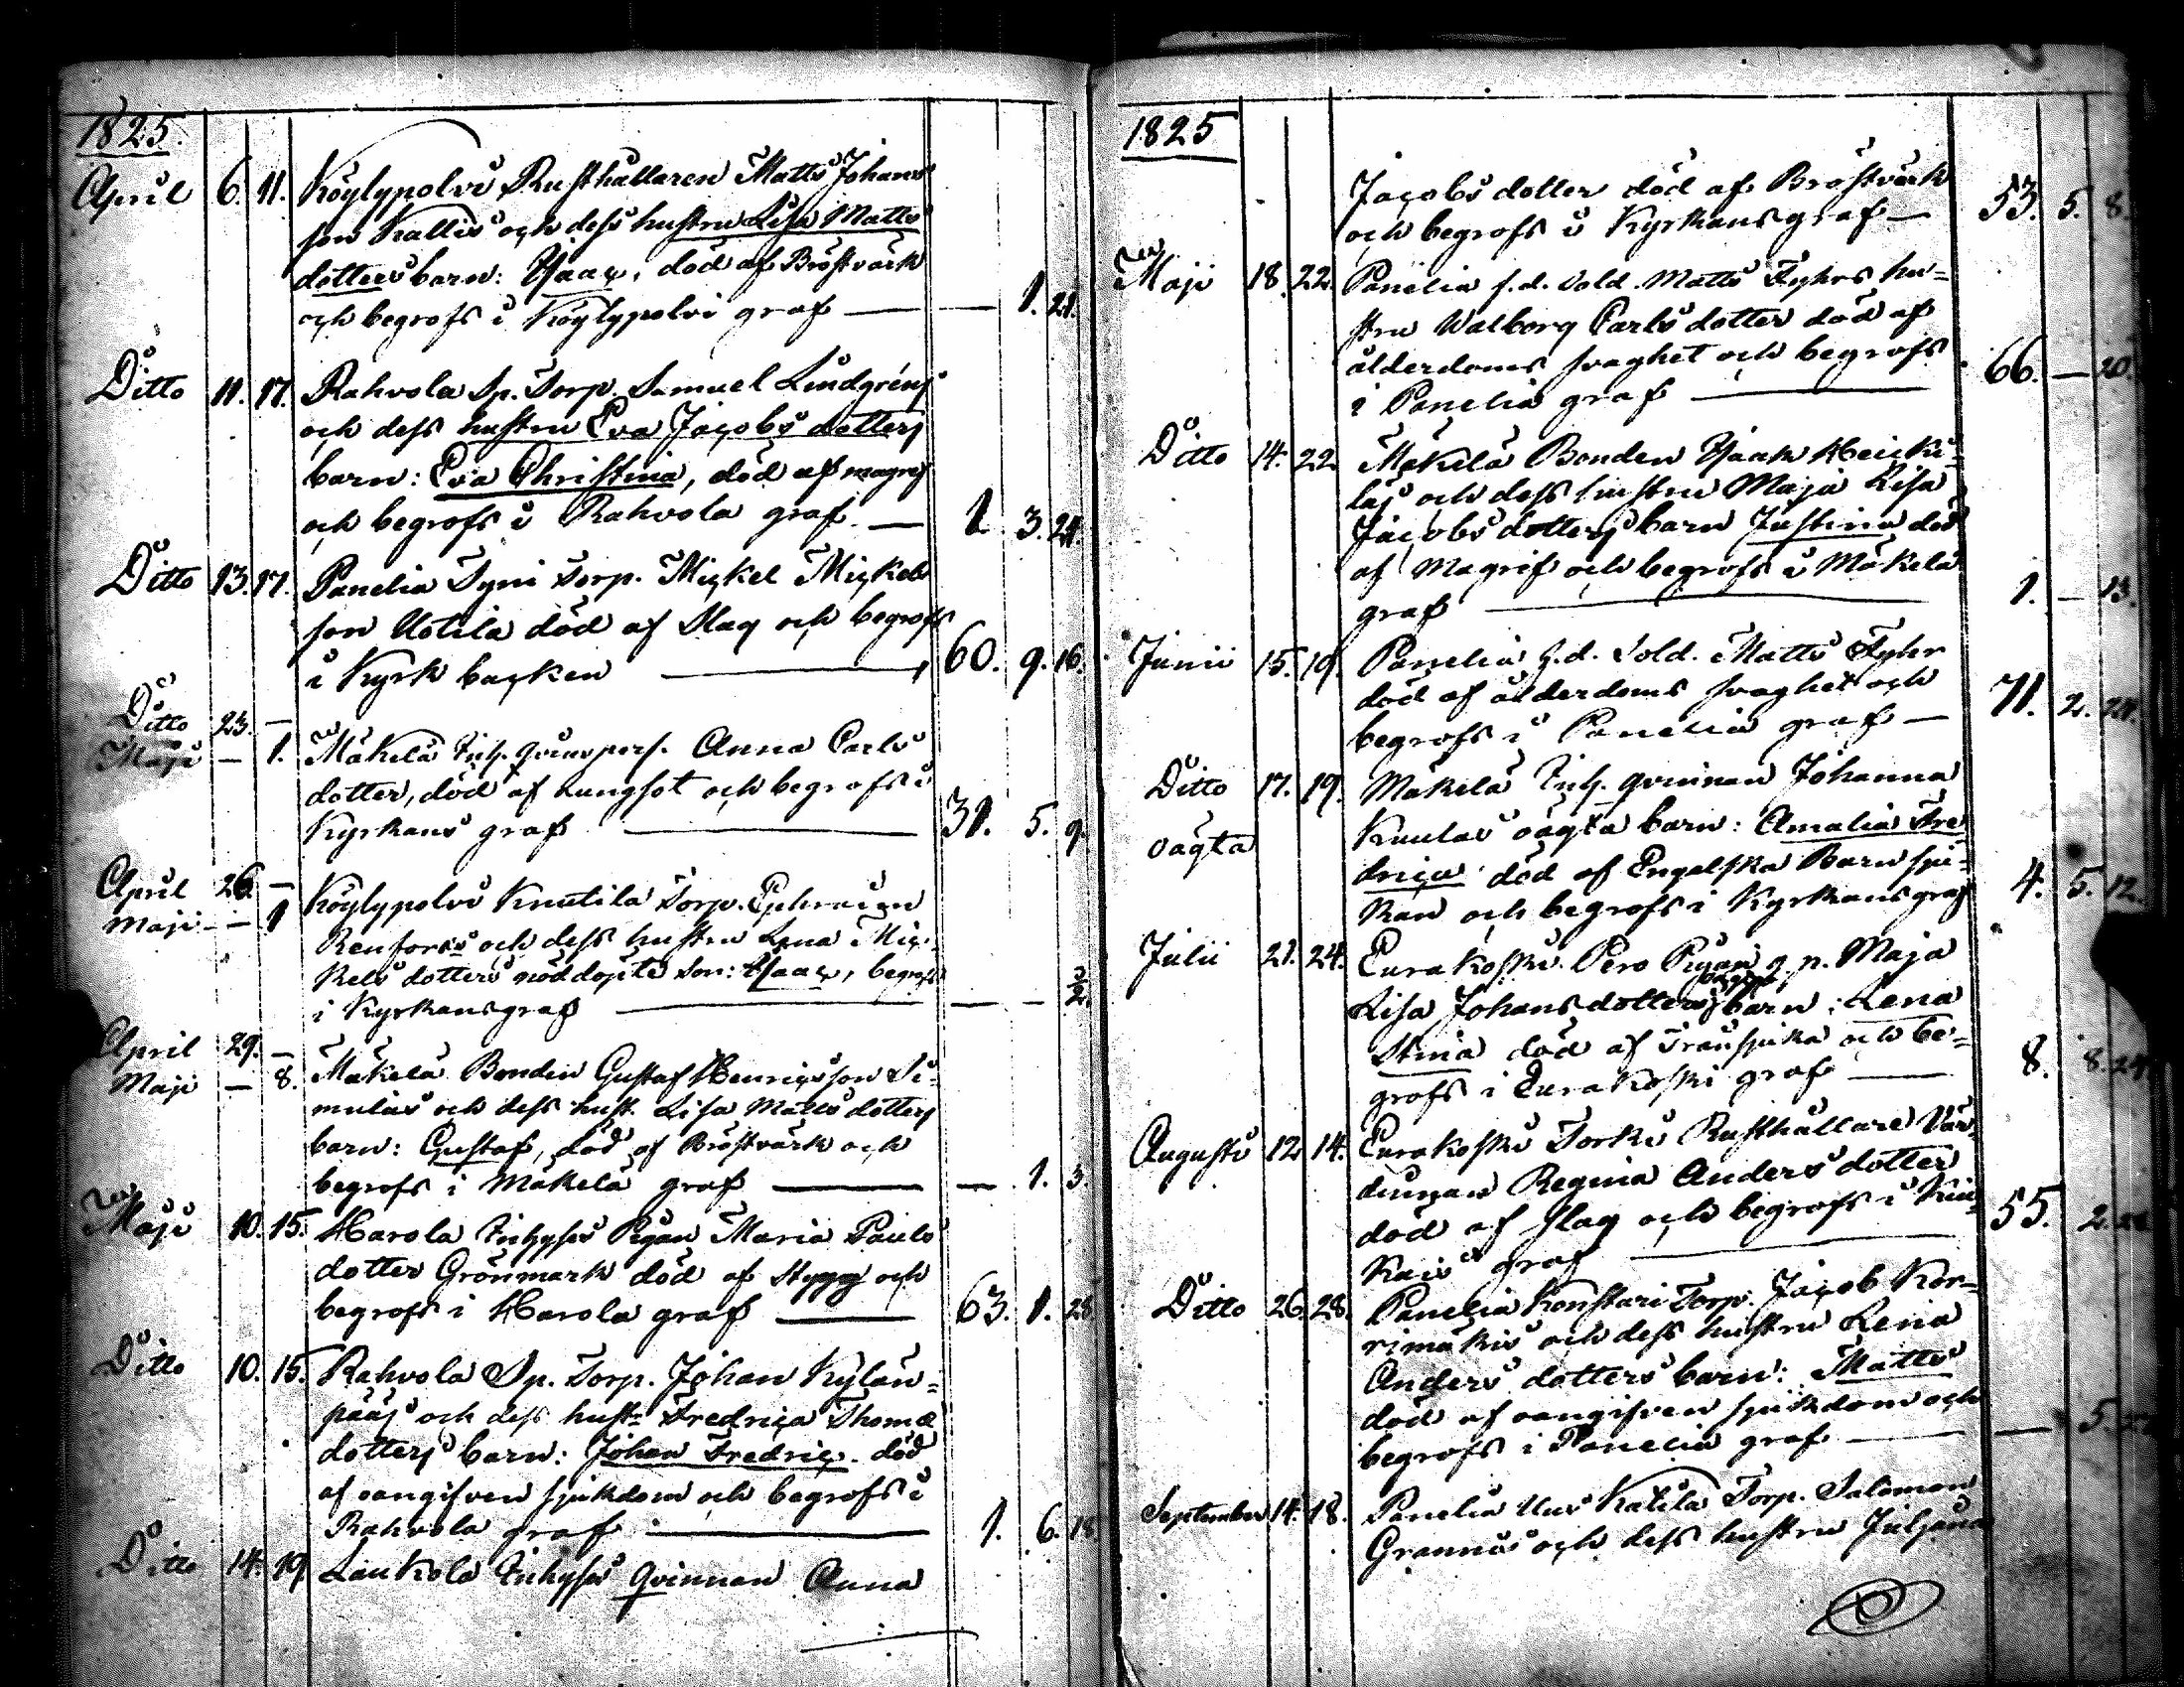 1825.
April 6. 11. Köylypolvi Rusthållaren Matts Johans
son Kallis och dess hustru Lisa Matts
dotters barn: Isaac, död af Bröstvärk
och begrofs i Köylypolvi graf — — 1. 21.
Ditto 11. 17. Rahvola Sp. Torp. Samuel Lindgréns
och dess hustru Eva Jacobs dotters
barn: Eva Christina, död af magref
och begrofs i Rahvola graf — 1. 3. 21.
Ditto 13. 17. Panelia Syni Torp. Mickel Mickels
son Uotila död af Slag och begrofs
i Kyrk backen — 60. 9. 16.
Ditto 23. —
Maji — 1. Mäkelä Inh. qvinspers. Anna Carls
dotter, död af Lungsot och begrofs i
Kyrkans graf — 31. 5. 9.
April 26. —
Maji — 1 Köylypolvi Knutila Torp. Ephraim
Renforss och dess hustru Lena Mic
kels dotters nöddöpte son: Isaac, begrofs
i Kyrkansgraf — — — 3/2.
April 29. —
Maji — 8. Mäkelä Bonden Gustaf Henricsson Si-
mulas och dess hust. Lisa Matts dotters
barn: Gustaf, död af Bröstvärk och
begrofs i Mäkelä graf — — 1. 3.
Maji 10. 15. Harola Inhyses Pigan Maria Pauls
dotter Grönmark död af Stygg och
begrofs i Harola graf — 63. 1. 28.
Ditto 10. 15. Rahvola Sp. Torp. Johan Kylän-
pääs och dess hust: Fredrica Thomæ
dotters barn: Johan Fredric. död
af oangifven sjukdom och begrofs i
Rahvola graf — 1. 6. 18.
Ditto 14. 19 Laukola Inhyses qvinnan Anna
1825
Jacobs dotter död af Bröstvärk
och begrofs i Kyrkansgraf — 53. 5. 8.
Maji 18. 22. Panelia f.d. Sold. Matts Fyhrs hu-
stru Walborg Carls dotter död af
ålderdoms svaghet och begrofs
i Panelia graf — 66. — 20.
Ditto 14. 22 Mäkelä Bonden Isaak Heicki-
läs och dess hustru Maja Lisa
Jacobs dotters barn Justina död
af Magref och begrofs i Mäkelä
graf — 1. — 13.
Junii 15. 19. Panelia f.d. Sold. Matts Fyhr
död af ålderdoms svaghet och
begrofs i Panelia graf — 71. 2. 21.
Ditto 17. 19. Mäkelä Inh. qvinnan Johanna
oägta Knutas oägta barn: Amalia Fre
drica död af Engelska Barn sju-
kan och begrofs i Kyrkansgraf 4. 5. 12.
Julii 21. 24. Eurakoski Pero Pigan q. p. Maja
Lisa Johansdotters barn: Lena
Stina död af Trånsjuka och be-
grofs i Eurakoski graf — 8. 8. 24
Augusti 12 14. Eurakoski Torki Rusthållare Vär-
dinnan Regina Anders dotter
död af slag och begrofs i Kiu
kais graf — 55. 2.
Ditto 26. 28. Panelia Konstari Torp. Jacob Kor-
rimäkis och dess hustru Lena
Anders dotters barn: Matts
död af oangifven sjukdom och
begrofs i Panelia graf — — 5.
September 14. 18. Panelia Uus Katila Torp. Salomon
Grannäs och dess hustru Juliana